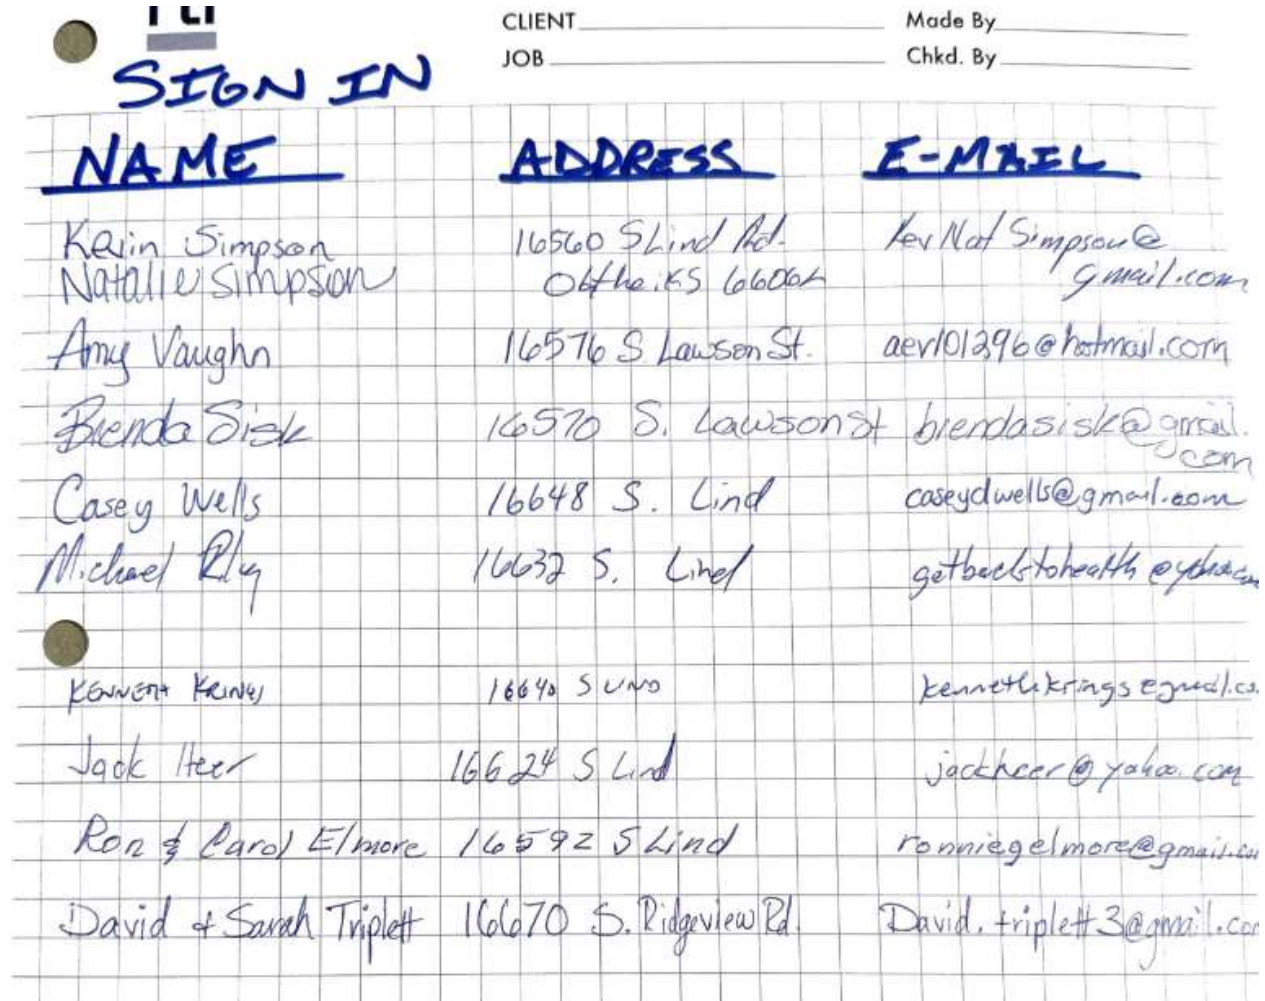 CLIENT Made By
JOB Chkd. By
SIGN IN
NAME ADDRESS E-MAIL
Kevin Simpson 16560 S Lind Rd. KevNatSimpson@
Natalie Simpson Olathe, KS 66062 gmail.com
Amy Vaughn 16576 S Lawson St. aev101296@hotmail.com
Brenda Sisk 16570 S. Lawson St brendasisk@gmail.
com
Casey Wells 16648 S. Lind caseydwells@gmail.com
Michael 16632 S. Lind getbacktohealth@yahoo.com
KENNETH KRINGS 16640 S LIND kennethkrings@gmail.co
Jack Heer 16624 S Lind jackheer@yahoo.com
Ron & Carol Elmore 16592 S Lind ronniegelmore@gmail.co
David + Sarah Triplett 16670 S. Ridgeview Rd. David.triplett3@gmail.com